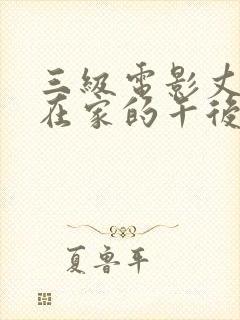 三級電影丈
在家的午後
夏魯平